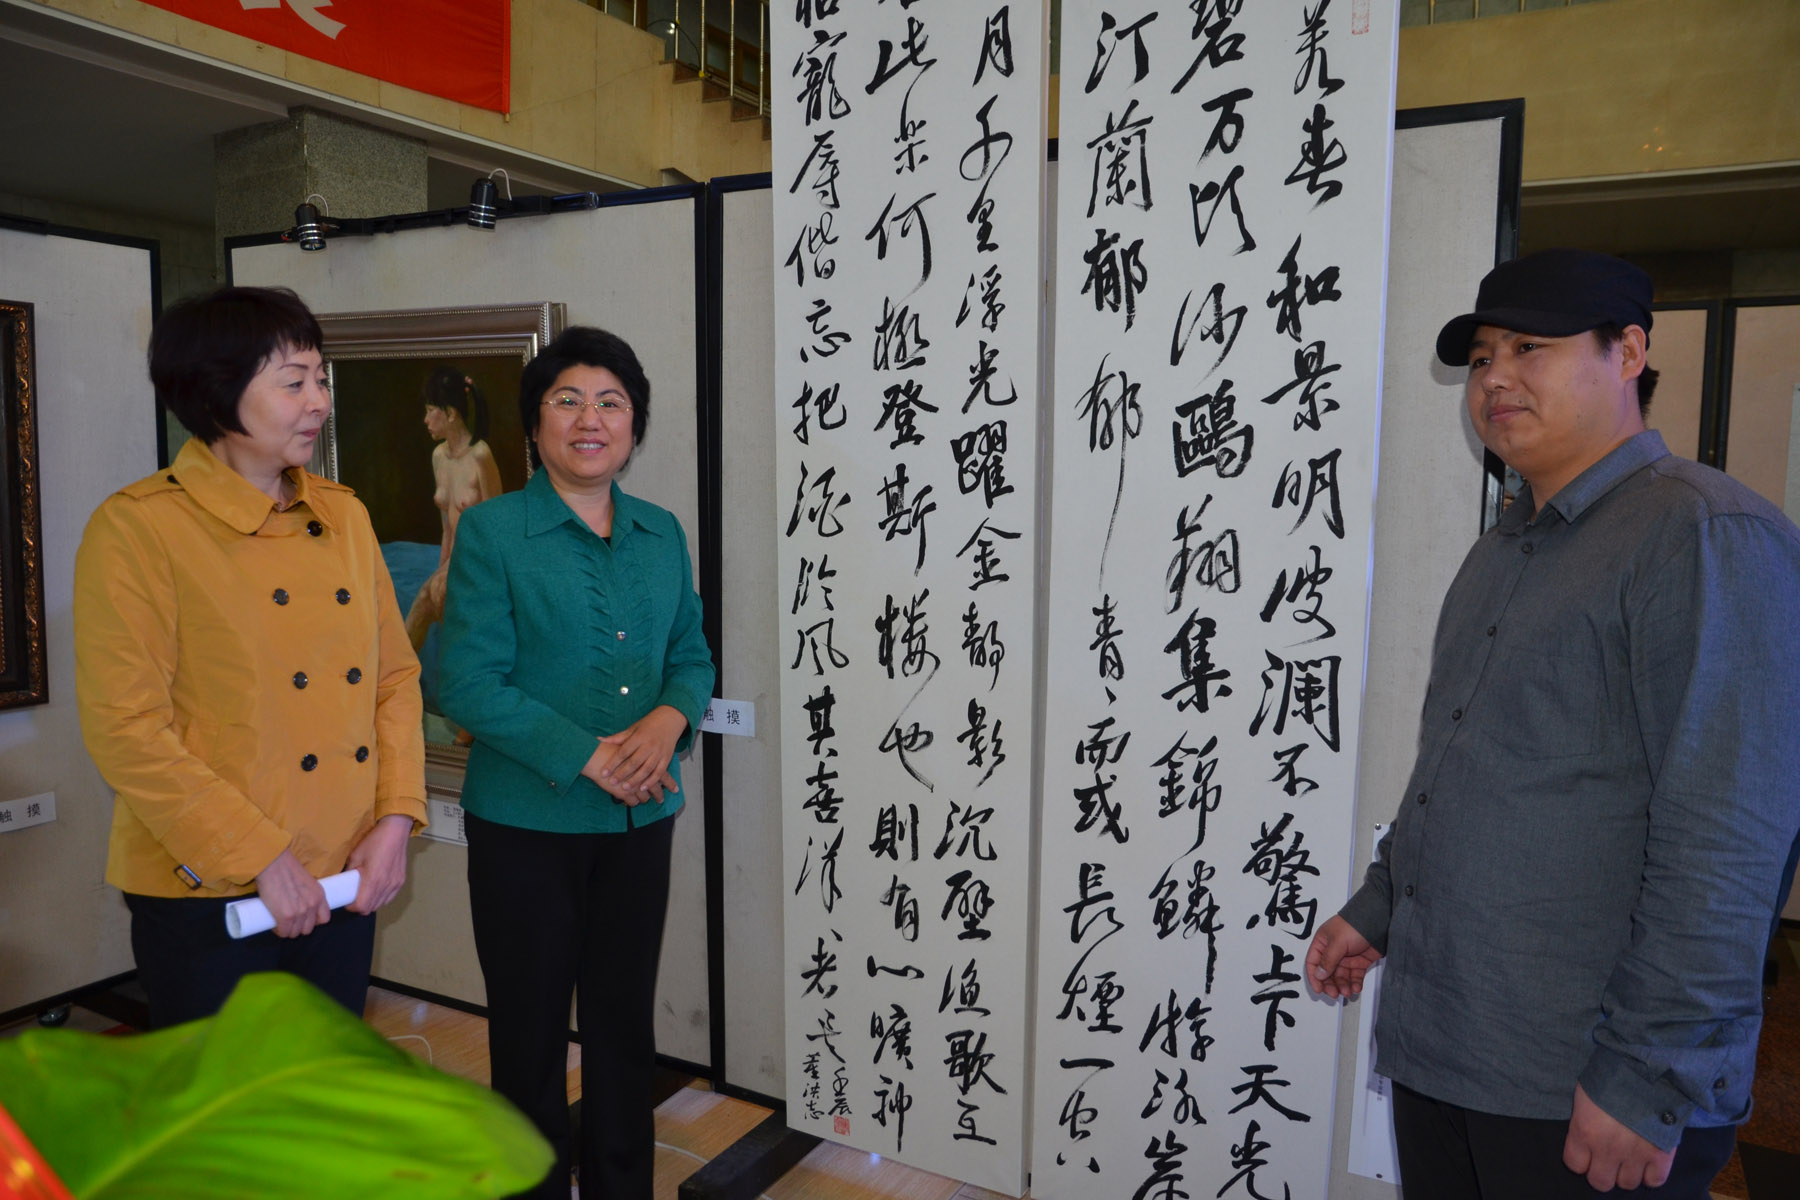 若春和景明波瀾不驚上下天光
碧万顷沙鷗翔集錦鱗游泳岸
汀蘭郁郁青〻而或長煙一空
月千里浮光躍金静影沉璧漁歌互
此楽何極登斯楼也則有心曠神
寵辱偕忘把酒临风其喜洋〻者矣
壬辰
董洪志
触 摸
触 摸